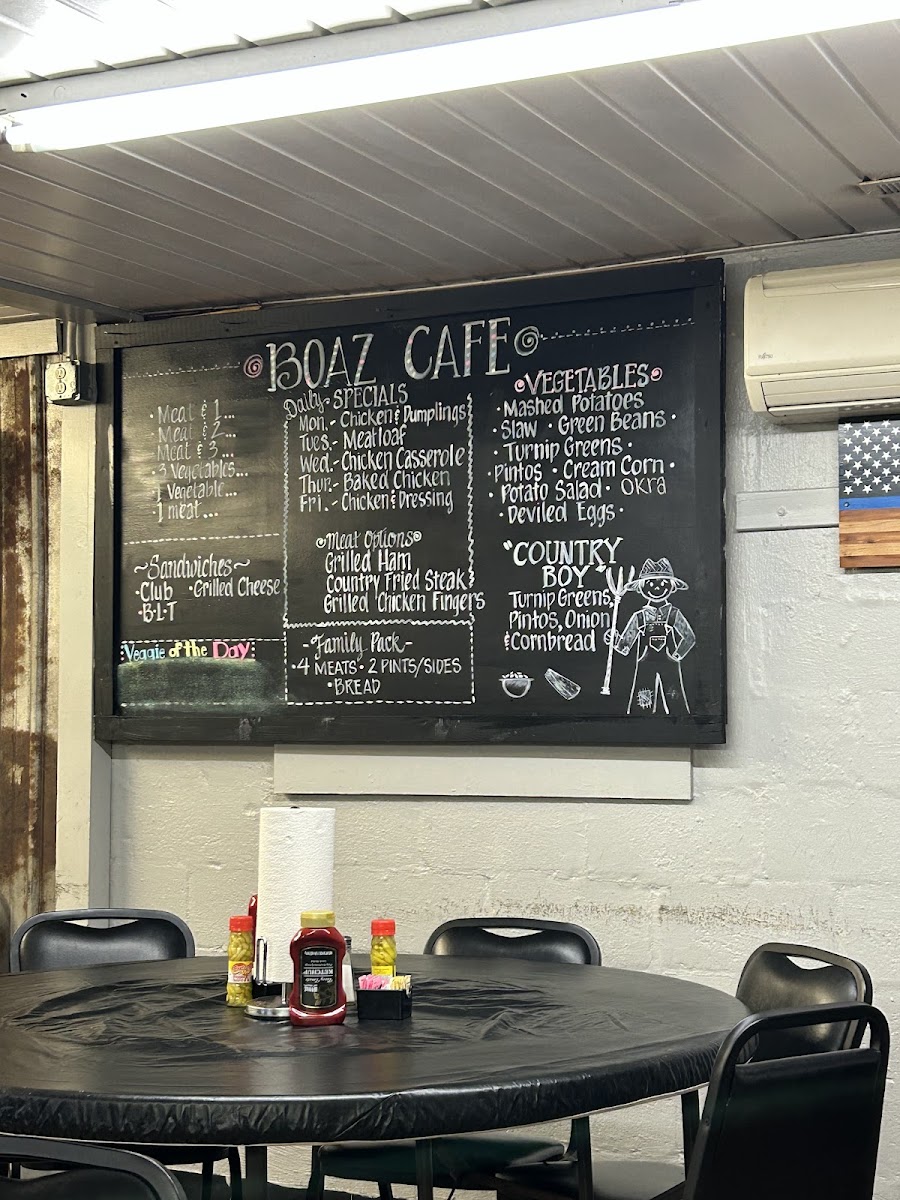 BOAZ CAFE
Meat & 1...
Meat & 2...
Meat & 3...
3 Vegetables...
1 Vegetable...
1 meat...
~Sandwiches~
·Club ·Grilled Cheese
·B·L·T
Veggie of the Day
Daily-SPECIALS
Mon.- Chicken & Dumplings
Tues.- Meatloaf
Wed.- Chicken Casserole
Thur.- Baked Chicken
Fri.- Chicken & Dressing
Meat Options
Grilled Ham
Country Fried Steak
Grilled Chicken Fingers
-Family Pack-
·4 MEATS· 2 PINTS/SIDES
·BREAD
·VEGETABLES
·Mashed Potatoes
·Slaw ·Green Beans·
·Turnip Greens·
·Pintos ·Cream Corn·
·Potato Salad· Okra
·Deviled Eggs·
"COUNTRY
BOY"
Turnip Greens,
Pintos, Onion
& Cornbread
KETCHUP
FUJITSU